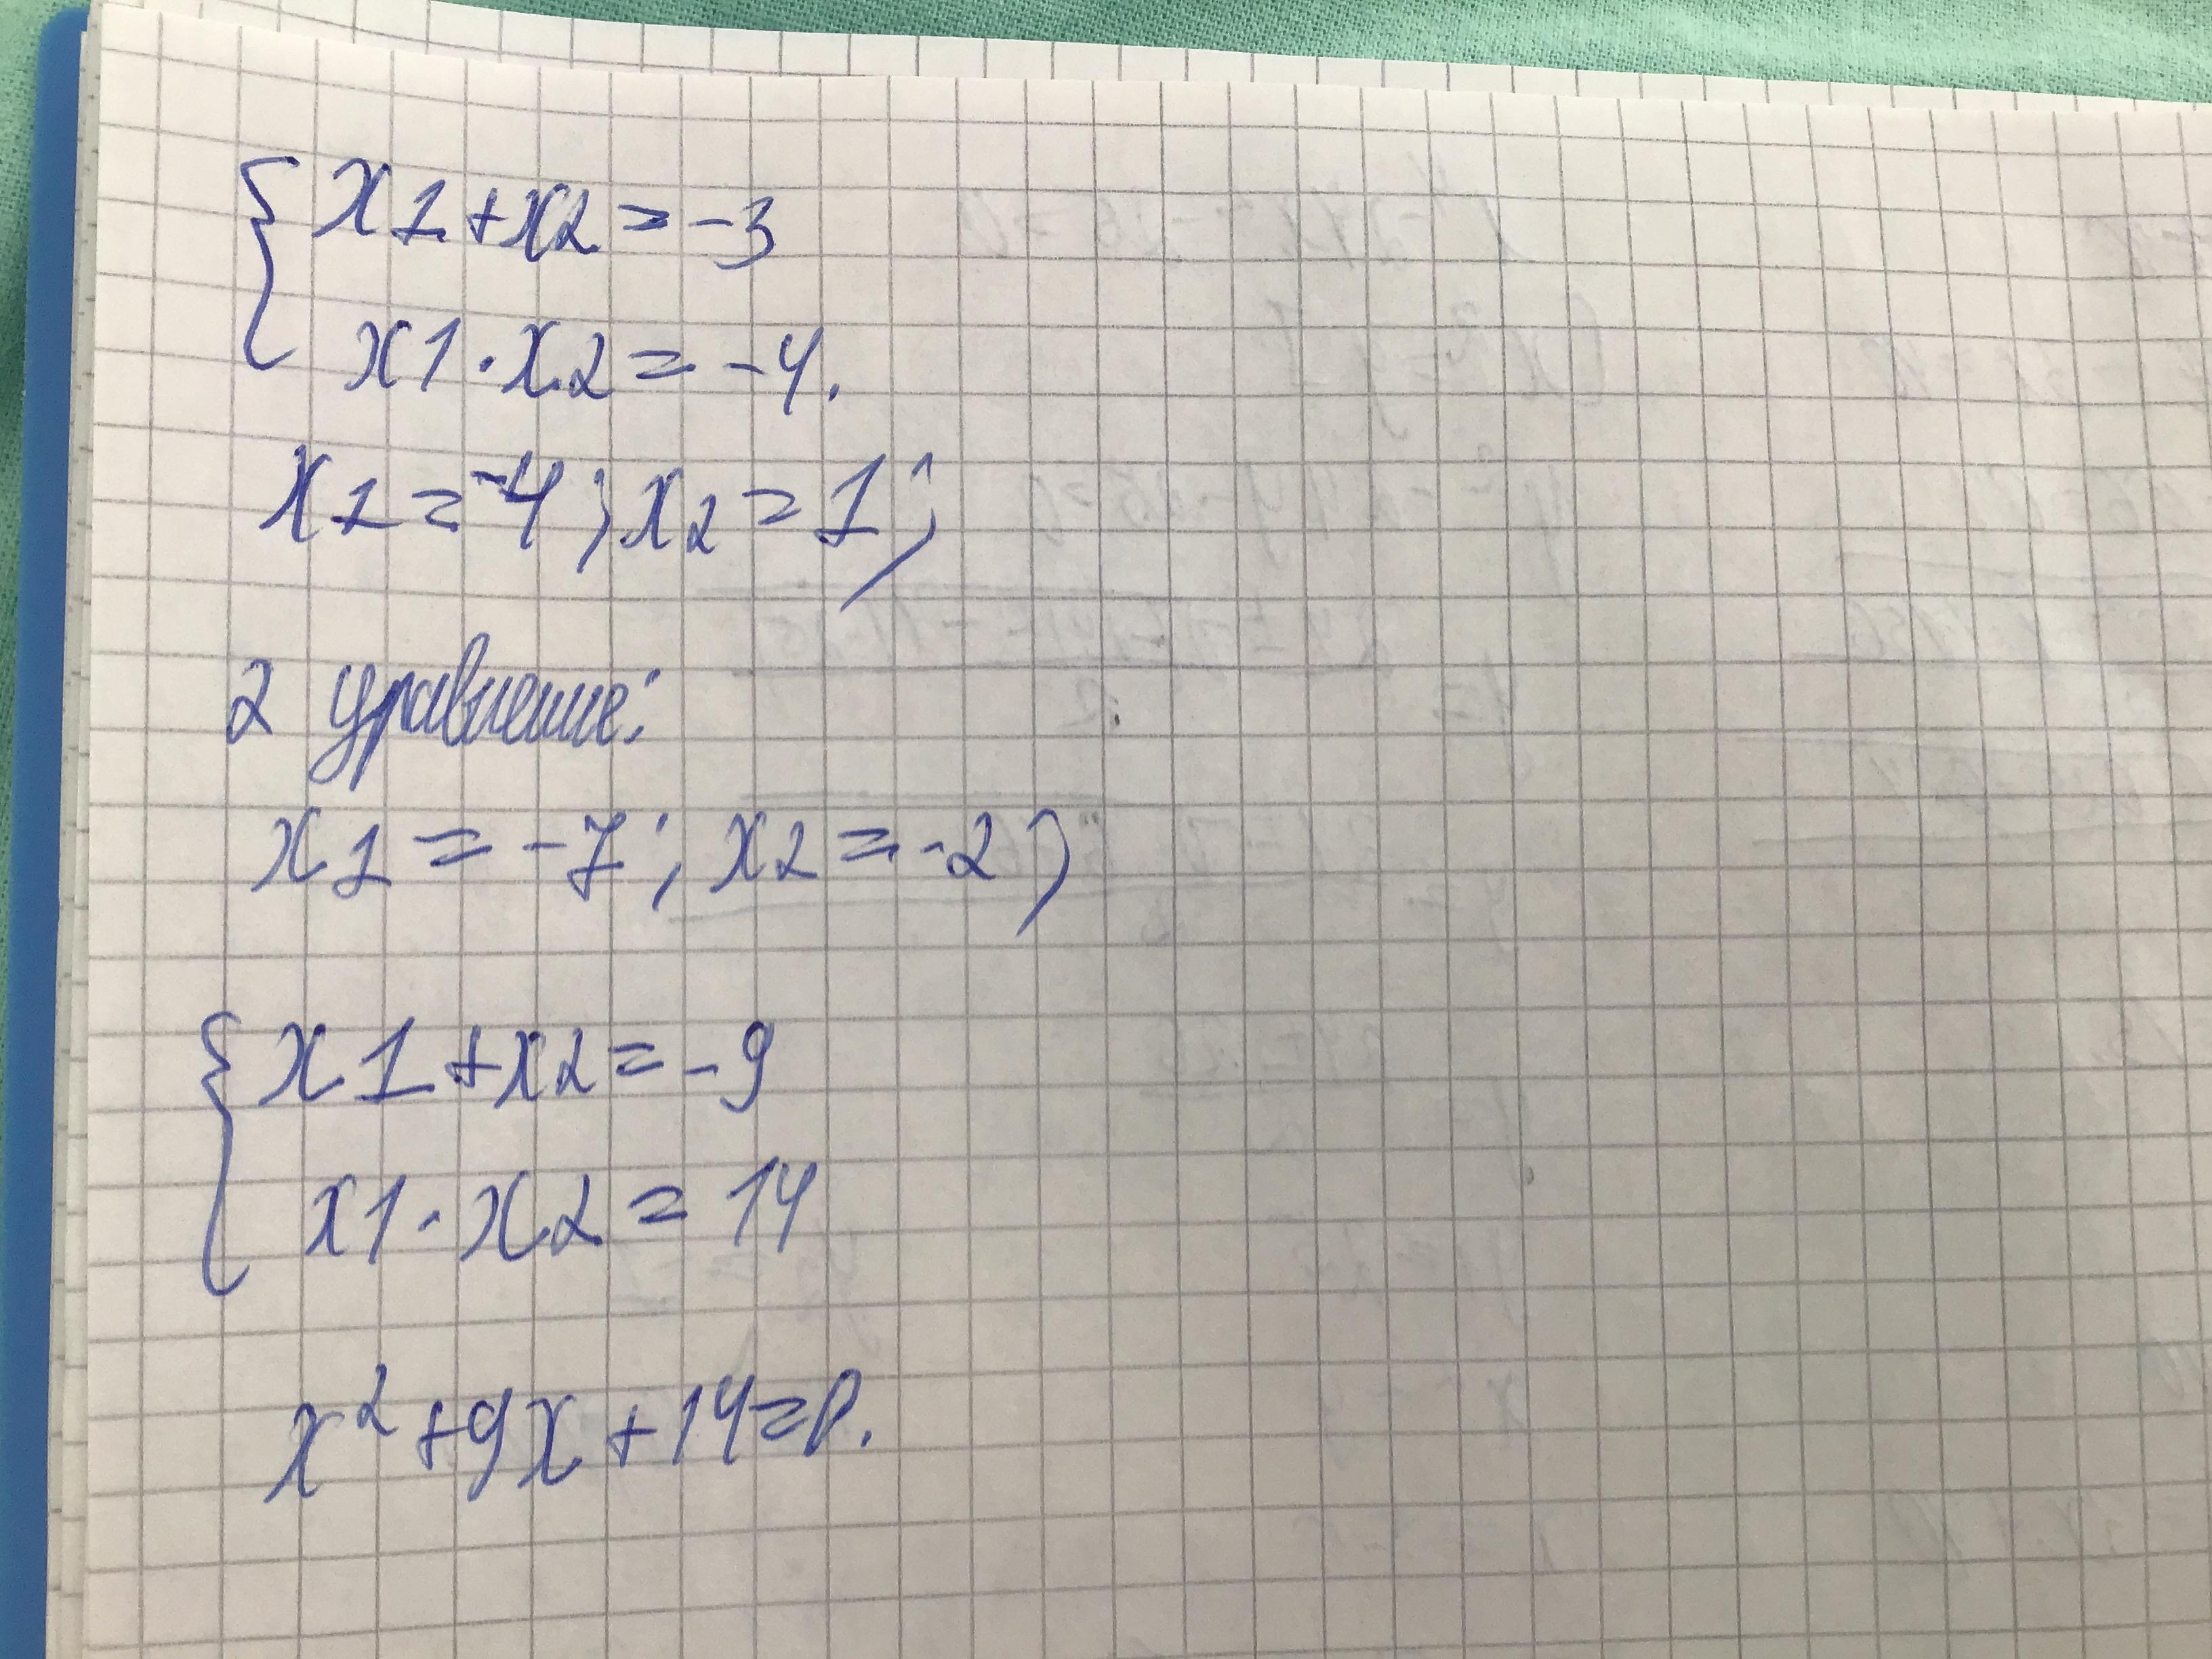 { x1+x2=-3
x1·x2=-4.
x1=-4; x2=1;
2 уравнение:
x1=-7; x2=-2;
{ x1+x2=-9
x1·x2=14
x²+9x+14=0.